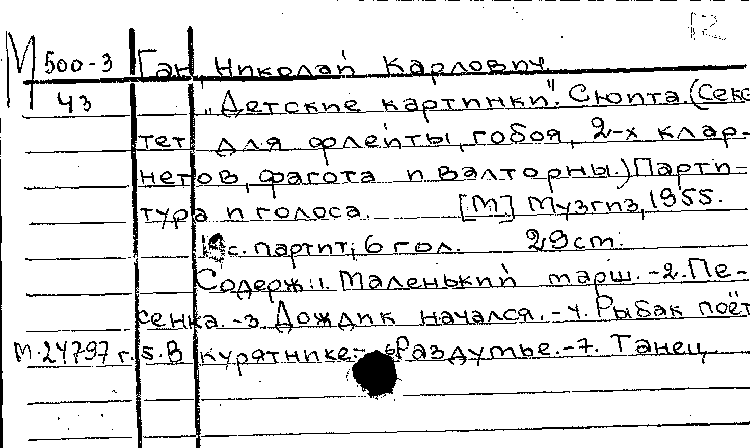 12
М 500-3 Ган, Николай Карлович.
43 „Детские картинки". Сюита. (Секс-
тет для флейты, гобоя, 2-х клар-
нетов, фагота и валторны.) Парти-
тура и голоса. [М.] Музгиз, 1955.
с. партит; 6 гол. 29 cm.
Содерж: 1. Маленький марш. -2. Пе-
сенка. -3. Дождик начался. -4. Рыбак поёт
М.24797 г. 5. В курятнике.- 6. Раздумье. -7. Танец